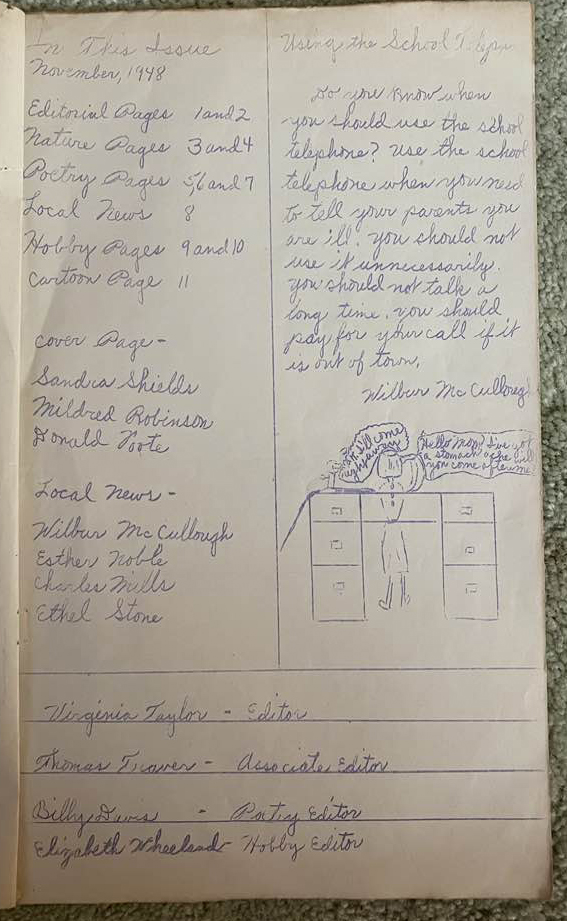 In This Issue
November, 1948
Editorial Pages 1 and 2
Nature Pages 3 and 4
Poetry Pages 5, 6 and 7
Local News 8
Hobby Pages 9 and 10
Cartoon Page 11
Cover Page-
Sandra Shields
Mildred Robinson
Donald Foote
Local News-
Wilbur McCullough
Esther Noble
Charles Mills
Ethel Stone
Using the School
Do you know when
you should use the school
telephone? Use the school
telephone when you need
to tell your parents you
are ill. You should not
use it unnecessarily.
You should not talk a
long time. You should
pay for your call if it
is out of town.
Wilbur McCullough
I'll come
right away
Hello Mom, I've got
a stomach ache will
you come after me
Virginia Taylor - Editor
Thomas Traver - Associate Editor
Billy Davis - Poetry Editor
Elizabeth Wheeland - Hobby Editor